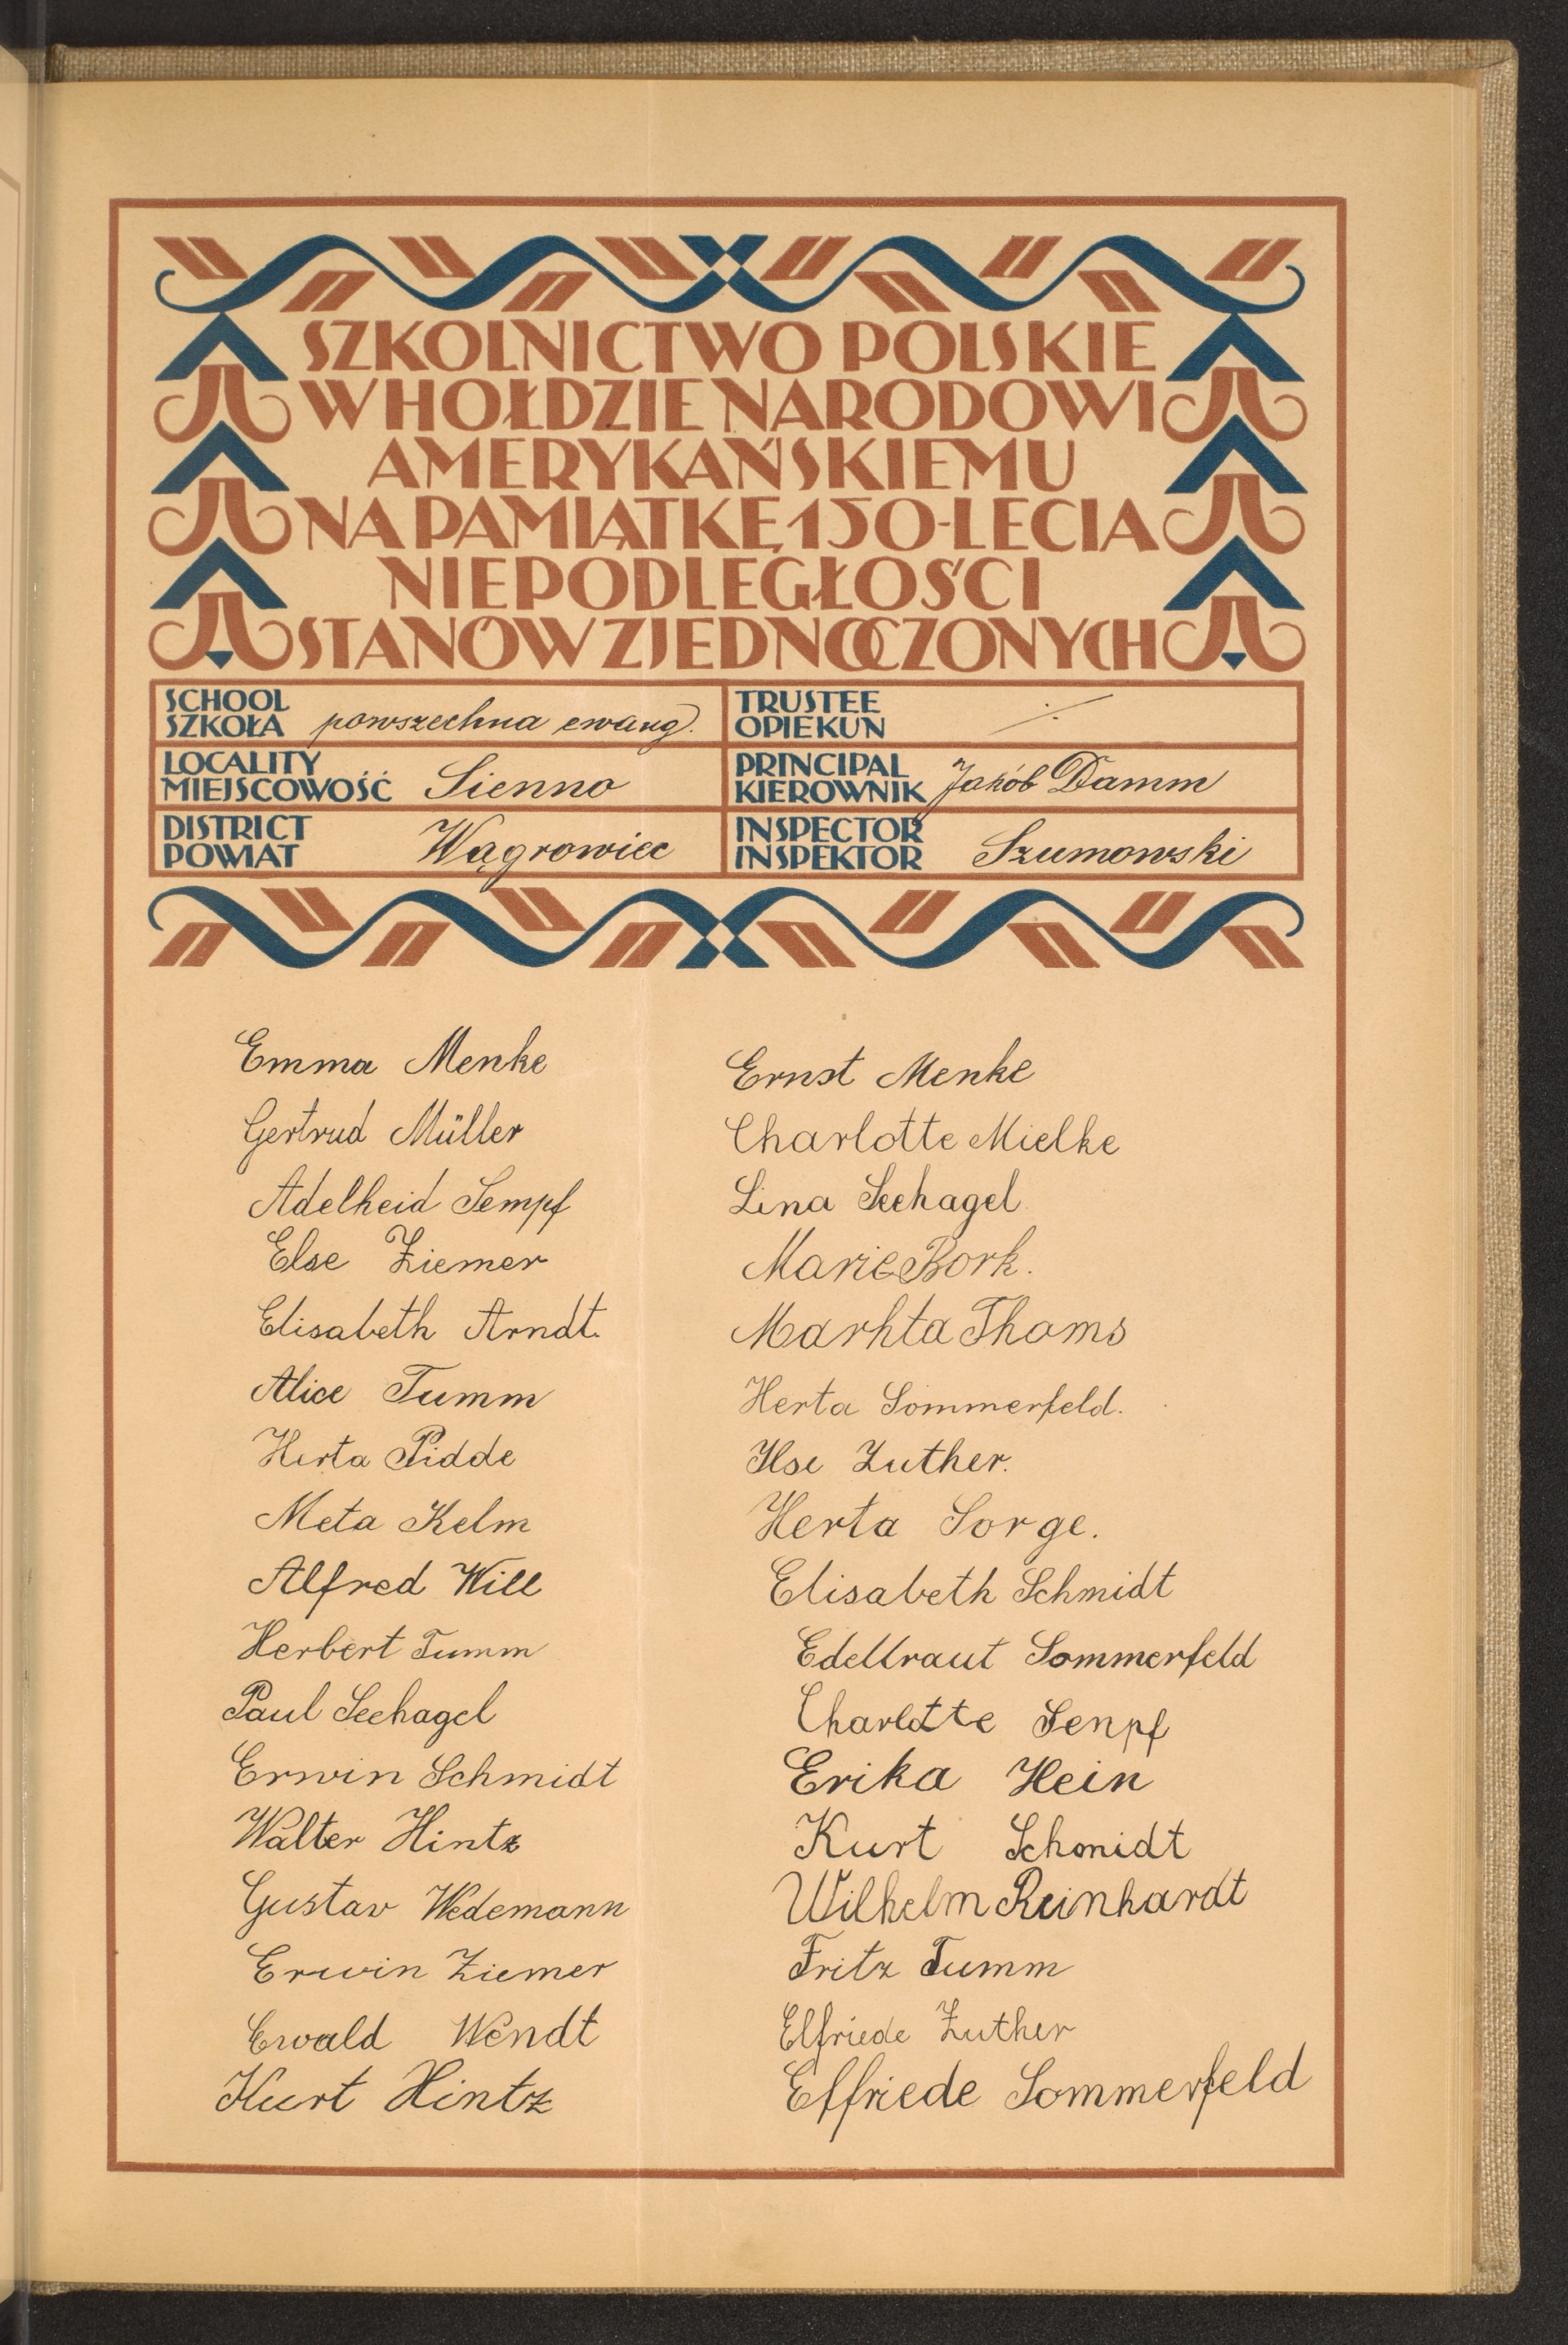 SZKOLNICTWO POLSKIE
W HOŁDZIE NARODOWI
AMERYKAŃSKIEMU
NA PAMIĄTKĘ 150-LECIA
NIEPODLEGŁOŚCI
STANÓW ZJEDNOCZONYCH
SCHOOL
SZKOŁA powszechna ewang.
TRUSTEE
OPIEKUN ·/·
LOCALITY
MIEJSCOWOŚĆ Sienno
PRINCIPAL
KIEROWNIK Jakób Damm
DISTRICT
POWIAT Wągrowiec
INSPECTOR
INSPEKTOR Szumowski
Emma Menke
Gertrud Müller
Adelheid Sempf
Else Ziemer
Elisabeth Arndt.
Alice Tumm
Herta Pidde
Meta Kelm
Alfred Will
Herbert Tumm
Paul Seehagel
Erwin Schmidt
Walter Hintz
Gustav Wedemann
Erwin Ziemer
Ewald Wendt
Kurt Hintz
Ernst Menke
Charlotte Mielke
Lina Seehagel
Marie Bork.
Marhta Thoms
Herta Sommerfeld.
Ilse Zuther.
Herta Sorge.
Elisabeth Schmidt
Edeltraut Sommerfeld
Charlotte Senpf
Erika Hein
Kurt Schmidt
Wilhelm Reinhardt
Fritz Tumm
Elfriede Zuther
Elfriede Sommerfeld